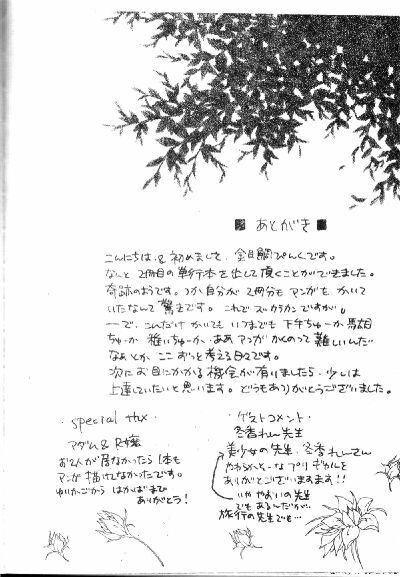 あとがき
こんにちは & 初めまして、金目鯛ぴんくです。
なんと2冊目の単行本を出して頂くことができました。
奇跡のようです。つか自分が2冊分もマンガをかいて
いたなんて驚きです。これでスッカラカンですが。
――で、こんだけかいてもいつまでも下手ちゅーか
ちゅーか 稚いちゅーか、ああマンガかくのって難しいんだ
なぁとか、ここずっと考える日々です。
次にお目にかかる機会が有りましたら、少しは
上達していたいと思います。どうもありがとうございました。
・special thx・
マダム & R嬢
お2人が居なかったら1本も
マンガ描けてなかったです。
ゆりかごから はかばまで
ありがとう!
・ゲストコメント・
冬香れん先生
美少女の先生、冬香れんさん
やわらかーなプリぎゃんを
ありがとーございますます!!
いや やおいの先生
でもあるんだが…
旅行の先生でも…